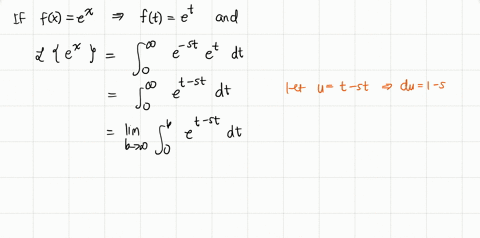 If f(x) = e^x ⇒ f(t) = e^t and
ℒ { e^x } = ∫_0^∞ e^{-st} e^t dt
= ∫_0^∞ e^{t-st} dt
let u = t-st ⇒ du = 1-s
= lim_{b→∞} ∫_0^b e^{t-st} dt